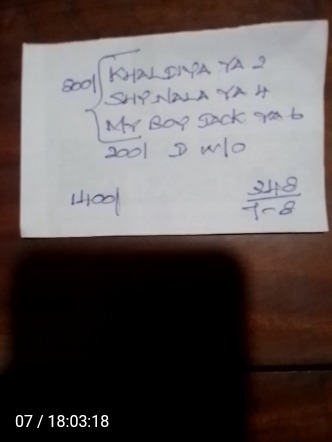 KHALDIYA YA 2
800/ SHY NALA YA 4
MY BOY JACK YA 6
200/ D W/O
1400/ 348
7-8
07 / 18:03:18